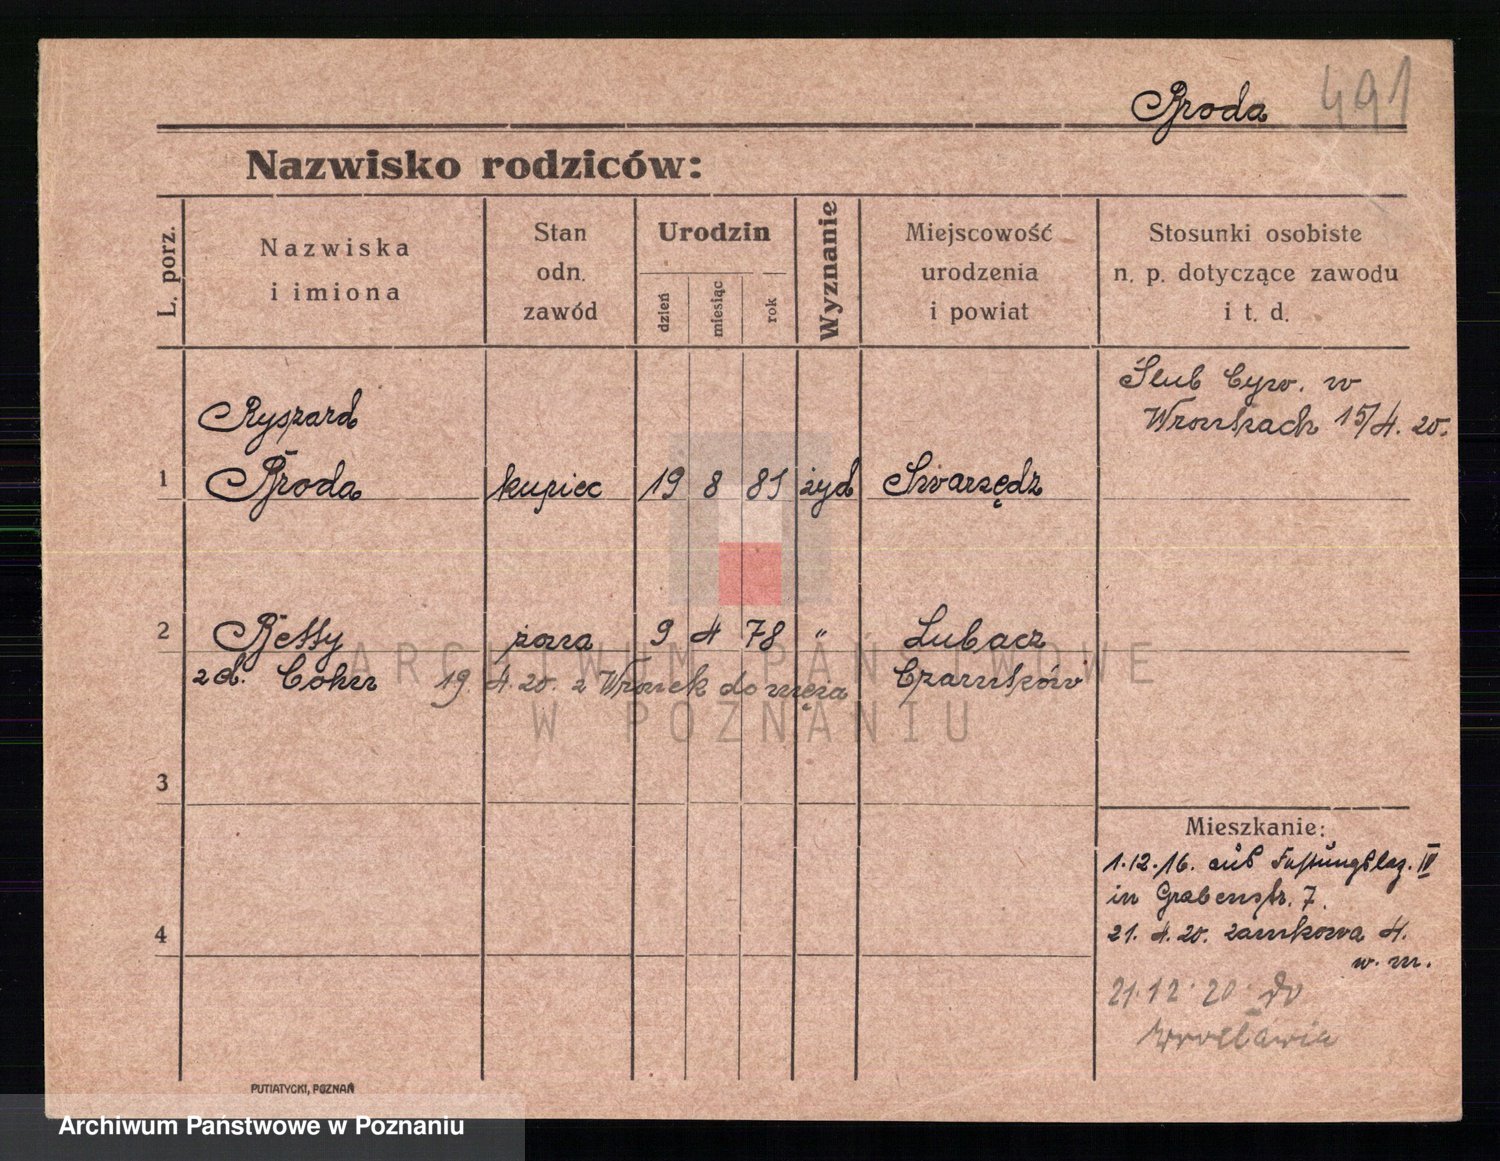 Broda 491
Nazwisko rodziców:
L. porz.
Nazwiska
i imiona
Stan
odn.
zawód
Urodzin
dzień
miesiąc
rok
Wyznanie
Miejscowość
urodzenia
i powiat
Stosunki osobiste
n. p. dotyczące zawodu
i t. d.
Ślub Cyw. w
Wronkach 15/4. 20.
Ryszard
1 Broda kupiec 19 8 81 żyd Swarzędz
2 Betty żona 9 4 78 " Lubacz
zd. Cohn 19. 4. 20. z Wronek do męża Czarnków
3
4
Mieszkanie:
1.12.16. aus Festungslaz. IV
in Grabenstr. 7.
21. 4. 20. Zamkowa 4.
w. m.
21.12.20 do
Wrocławia
PUTIATYCKI, POZNAŃ
ARCHIWUM PAŃSTWOWE
W POZNANIU
Archiwum Państwowe w Poznaniu